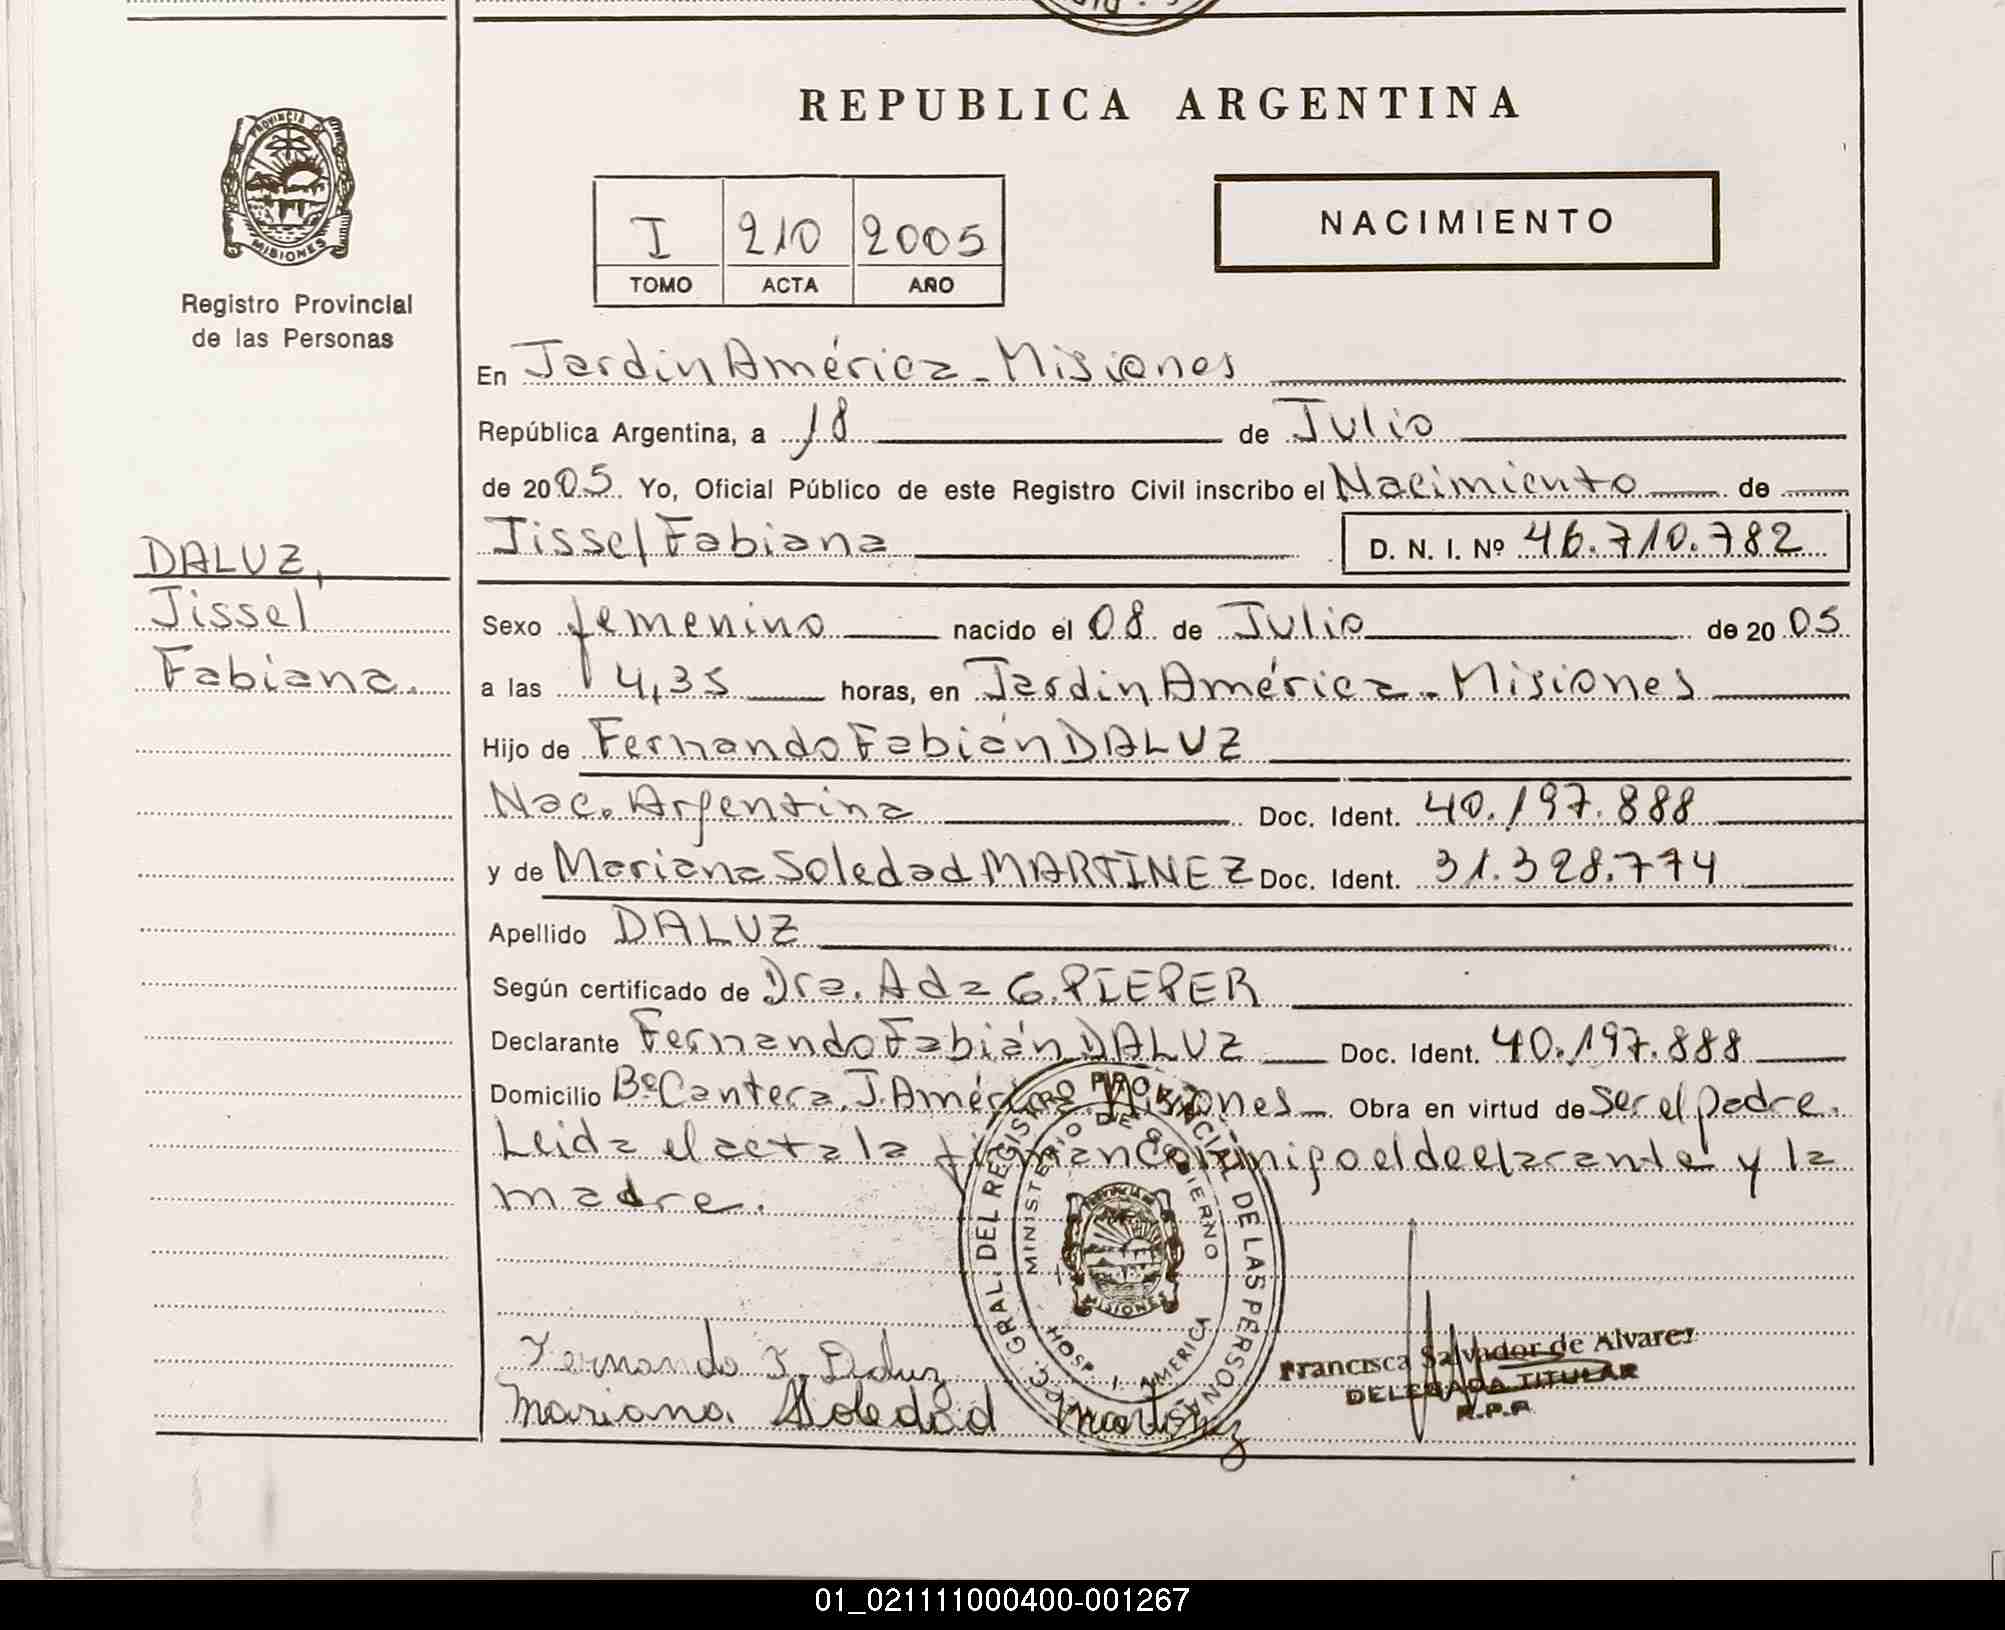 REPUBLICA ARGENTINA
PROVINCIA DE
MISIONES
Registro Provincial
de las Personas
I 210 2005
TOMO ACTA AÑO
NACIMIENTO
En Jardin América - Misiones
República Argentina, a 18 de Julio
de 2005 Yo, Oficial Público de este Registro Civil inscribo el Nacimiento de
Jissel Fabiana D. N. I. Nº 46.710.782
DALUZ,
Jissel
Fabiana.
Sexo femenino nacido el 08 de Julio de 2005
a las 4,35 horas, en Jardin América - Misiones
Hijo de Fernando Fabián DALUZ
Nac. Argentina Doc. Ident. 40.197.888
y de Mariana Soledad MARTINEZ Doc. Ident. 31.328.774
Apellido DALUZ
Según certificado de Dra. Ada G. PIEPER
Declarante Fernando Fabián DALUZ Doc. Ident. 40.197.888
Domicilio Bº Cantera, J. América Misiones Obra en virtud de ser el padre.
Leida el acta la firman conmigo el declarante y la
madre.
GRAL. DEL REGISTRO PROVINCIAL DE LAS PERSONAS
MINISTERIO DE GOBIERNO
MISIONES
HOSP. J. AMERICA
Fernando F. Daluz
Mariana Soledad Martinez
Francisca Salvador de Alvarez
DELEGADA TITULAR
R.P.P.
01_021111000400-001267